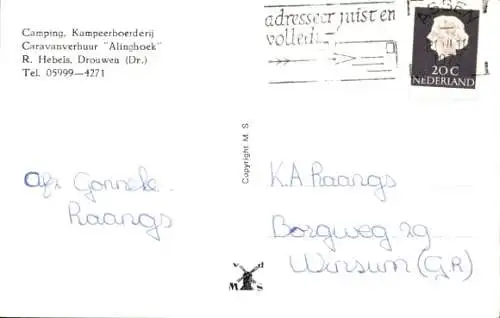 Camping, Kampeerboerderij
Caravanverhuur "Alinghoek"
R. Hebels, Drouwen (Dr.)
Tel. 05999—4271
adresseer juist en
volledig!
ASSEN
20 C
NEDERLAND
Copyright M. S
afz Gonneke
Raangs
K.A Raangs
Borgweg 29
Wirsum (GR)
v d
M S